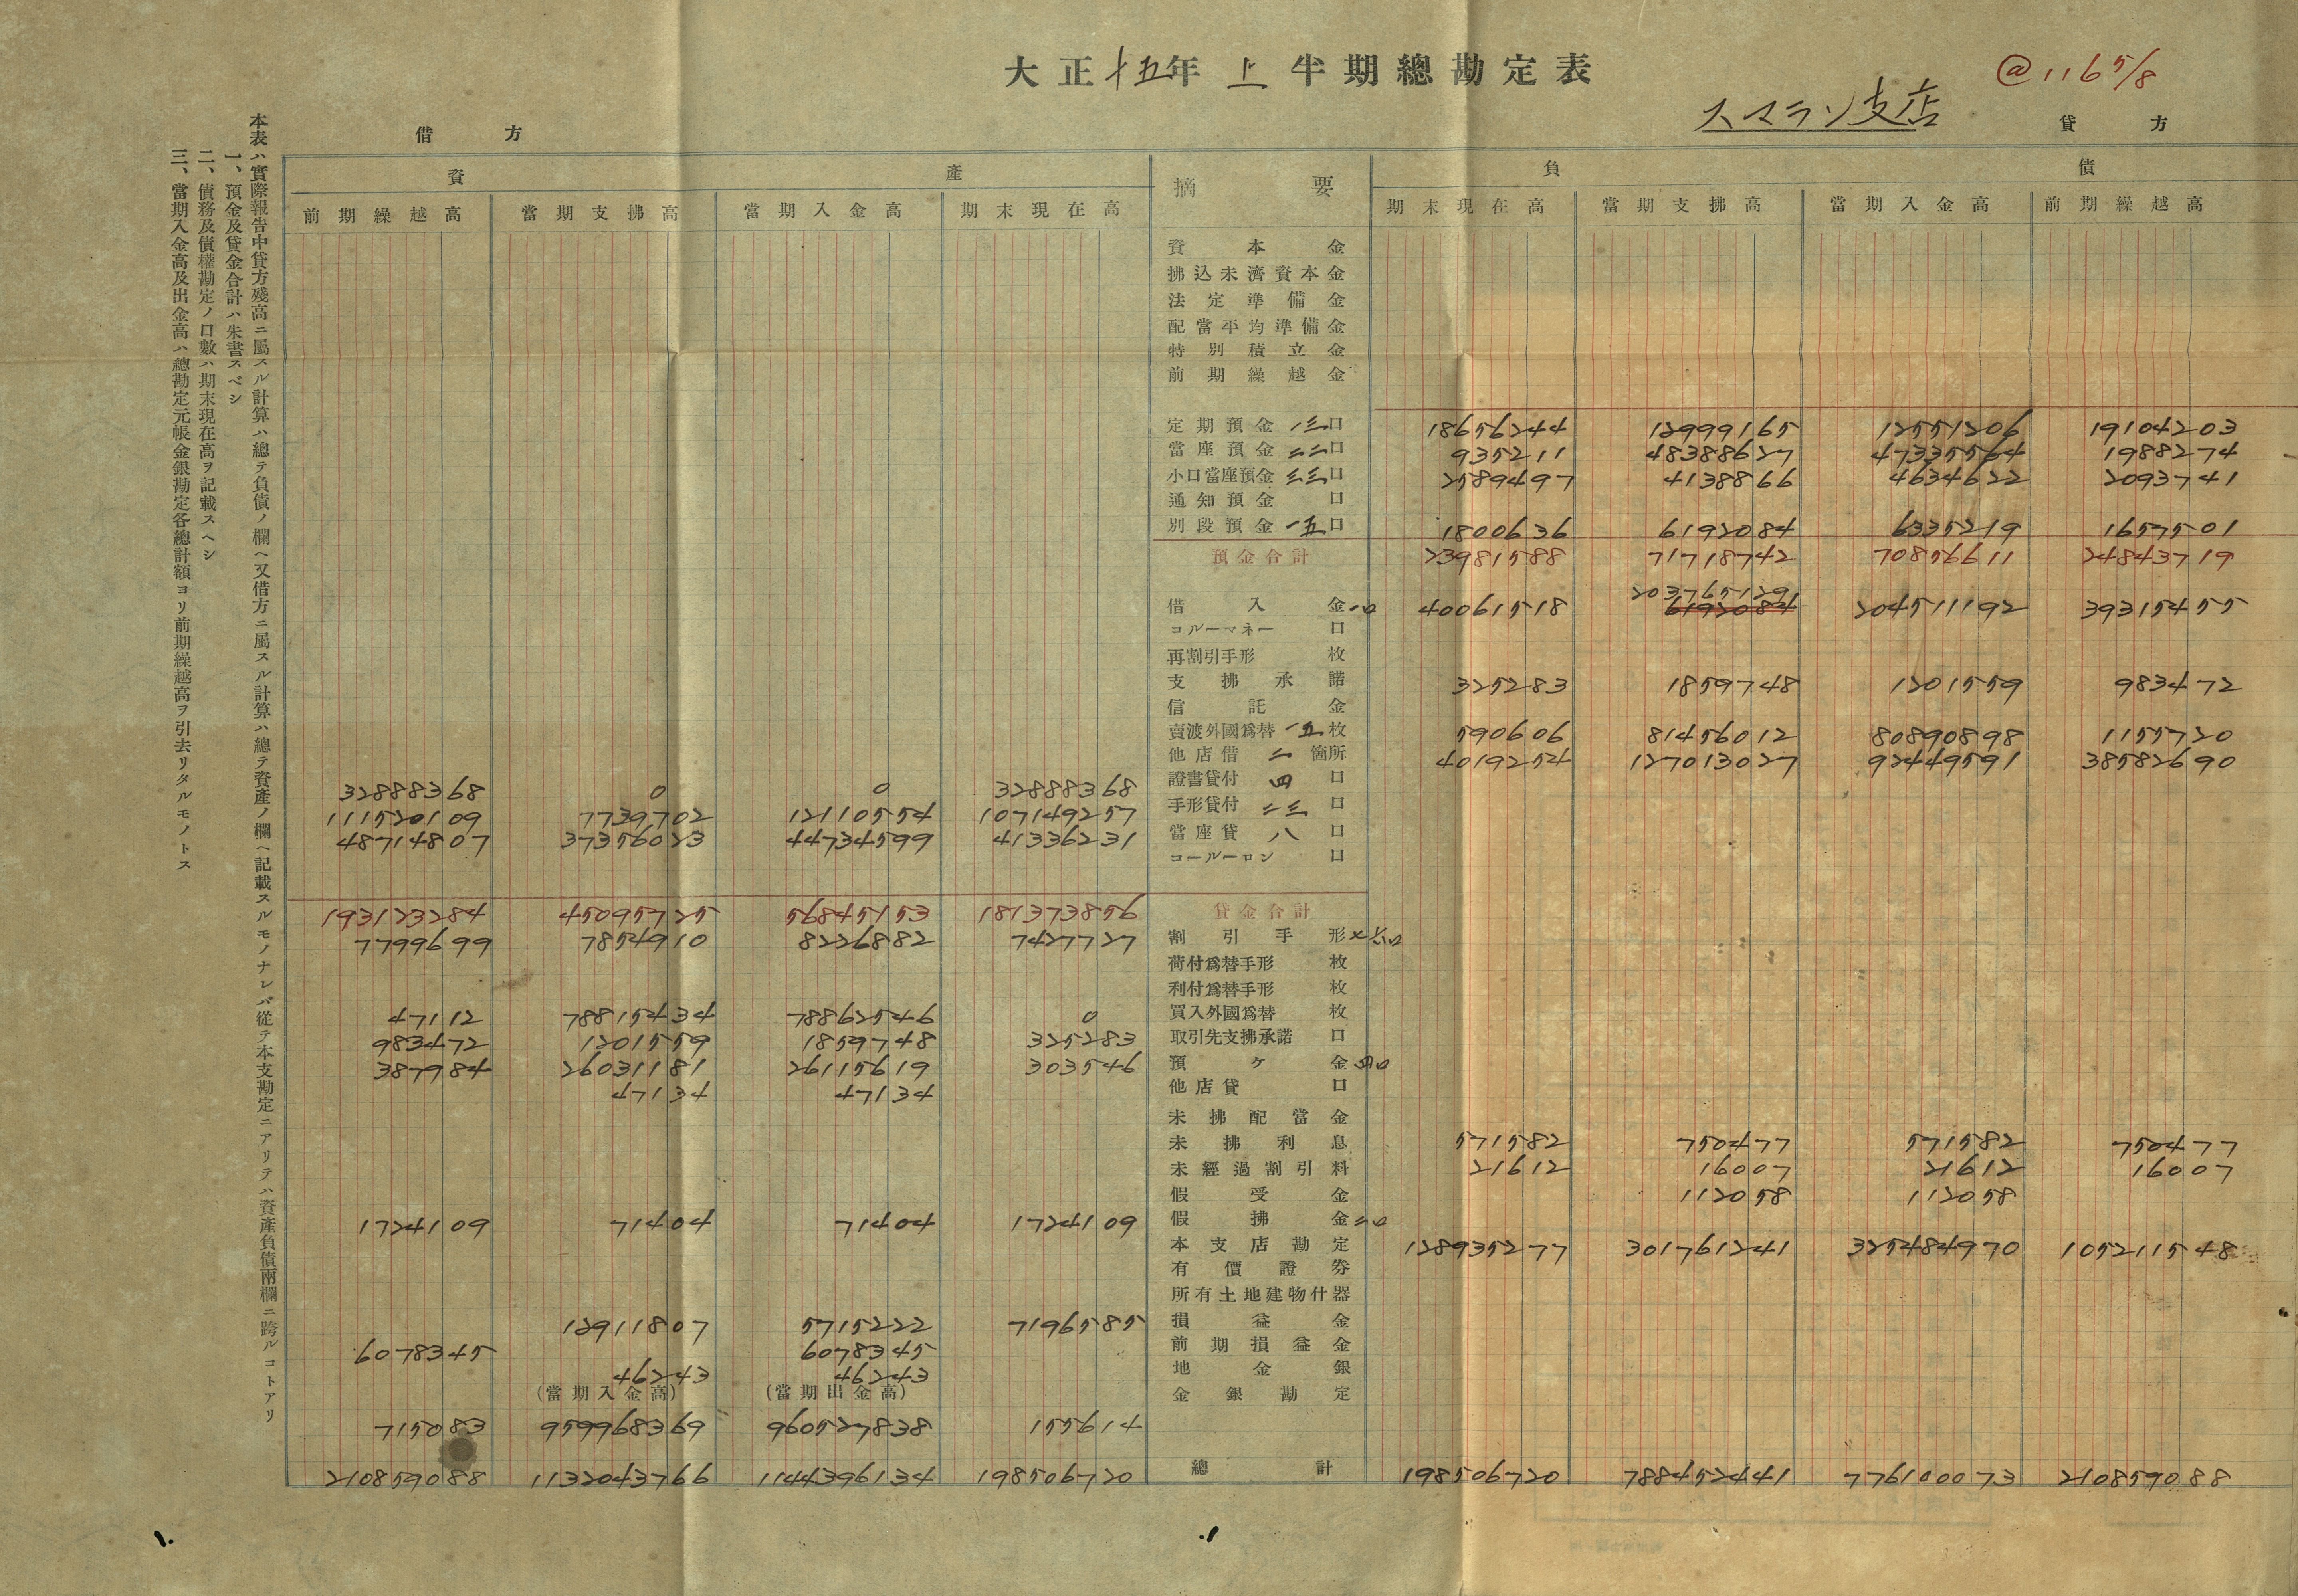 大正十五年上半期總勘定表
@116 5/8
スマラン支店
借方
貸方
本表ハ實際報告中貸方殘高ニ屬スル計算ハ總テ負債ノ欄ヘ又借方ニ屬スル計算ハ總テ資產ノ欄ヘ記載スルモノナレバ從テ本支勘定ニアリテハ資產負債兩欄ニ跨ルコトアリ
一、預金及貸金合計ハ朱書スベシ
二、債務及債權勘定ノ口數ハ期末現在高ヲ記載スヘシ
三、當期入金高及出金高ハ總勘定元帳金銀勘定各總計額ヨリ前期繰越高ヲ引去リタルモノトス
資產 摘要 負債
前期繰越高 當期支拂高 當期入金高 期末現在高 期末現在高 當期支拂高 當期入金高 前期繰越高
資本金
拂込未濟資本金
法定準備金
配當平均準備金
特別積立金
前期繰越金
定期預金 一三口 18656244 12999165 12551206 19104203
當座預金 二二口 935211 48388627 47335564 1988274
小口當座預金 三三口 2589497 4138866 4634622 2093741
通知預金 口
別段預金 一五口 1800636 6192084 6335219 1657501
預金合計 23981588 71718742 70856611 24843719
203765129
借入金 一口 40061518 6192084 204511192 39315455
コルーマネー 口
再割引手形 枚
支拂承諾 325283 1859748 1201559 983472
信託金
賣渡外國爲替 一五枚 590606 81456012 80890898 1155720
他店借 二箇所 4019254 127013027 92449591 38582690
32888368 0 0 32888368 證書貸付 四口
111520109 7739702 12110554 107149257 手形貸付 二三口
48714807 37356023 44734599 41336231 當座貸 八口
コールーロン 口
193123284 45095725 56845153 181373856 貸金合計
7799699 7854910 8226882 7427727 割引手形
荷付爲替手形 枚
利付爲替手形 枚
47112 78815434 78862546 0 買入外國爲替 枚
983472 1201559 1859748 325283 取引先支拂承諾 口
387984 26031181 26115619 303546 預ケ金 四口
47134 47134 他店貸 口
未拂配當金
未拂利息 571582 750477 571582 750477
未經過割引料 21612 16007 21612 16007
假受金 112058 112058
1724109 71404 71404 1724109 假拂金 二口
本支店勘定 128935277 301761241 325484970 105211548
有價證券
所有土地建物什器
12911807 5715222 7196585 損益金
6078345 6078345 前期損益金
46243 46243 地金銀
(當期入金高) (當期出金高) 金銀勘定
715083 959968369 960527838 155614
210859088 1132043766 1144396134 198506720 總計 198506720 788452441 776100073 210859088